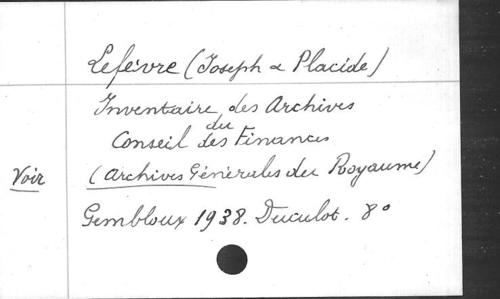 Lefèvre (Joseph & Placide)
Inventaire des Archives
du
Conseil des Finances
Voir (Archives Générales du Royaume)
Gembloux 1938. Duculot. 8°